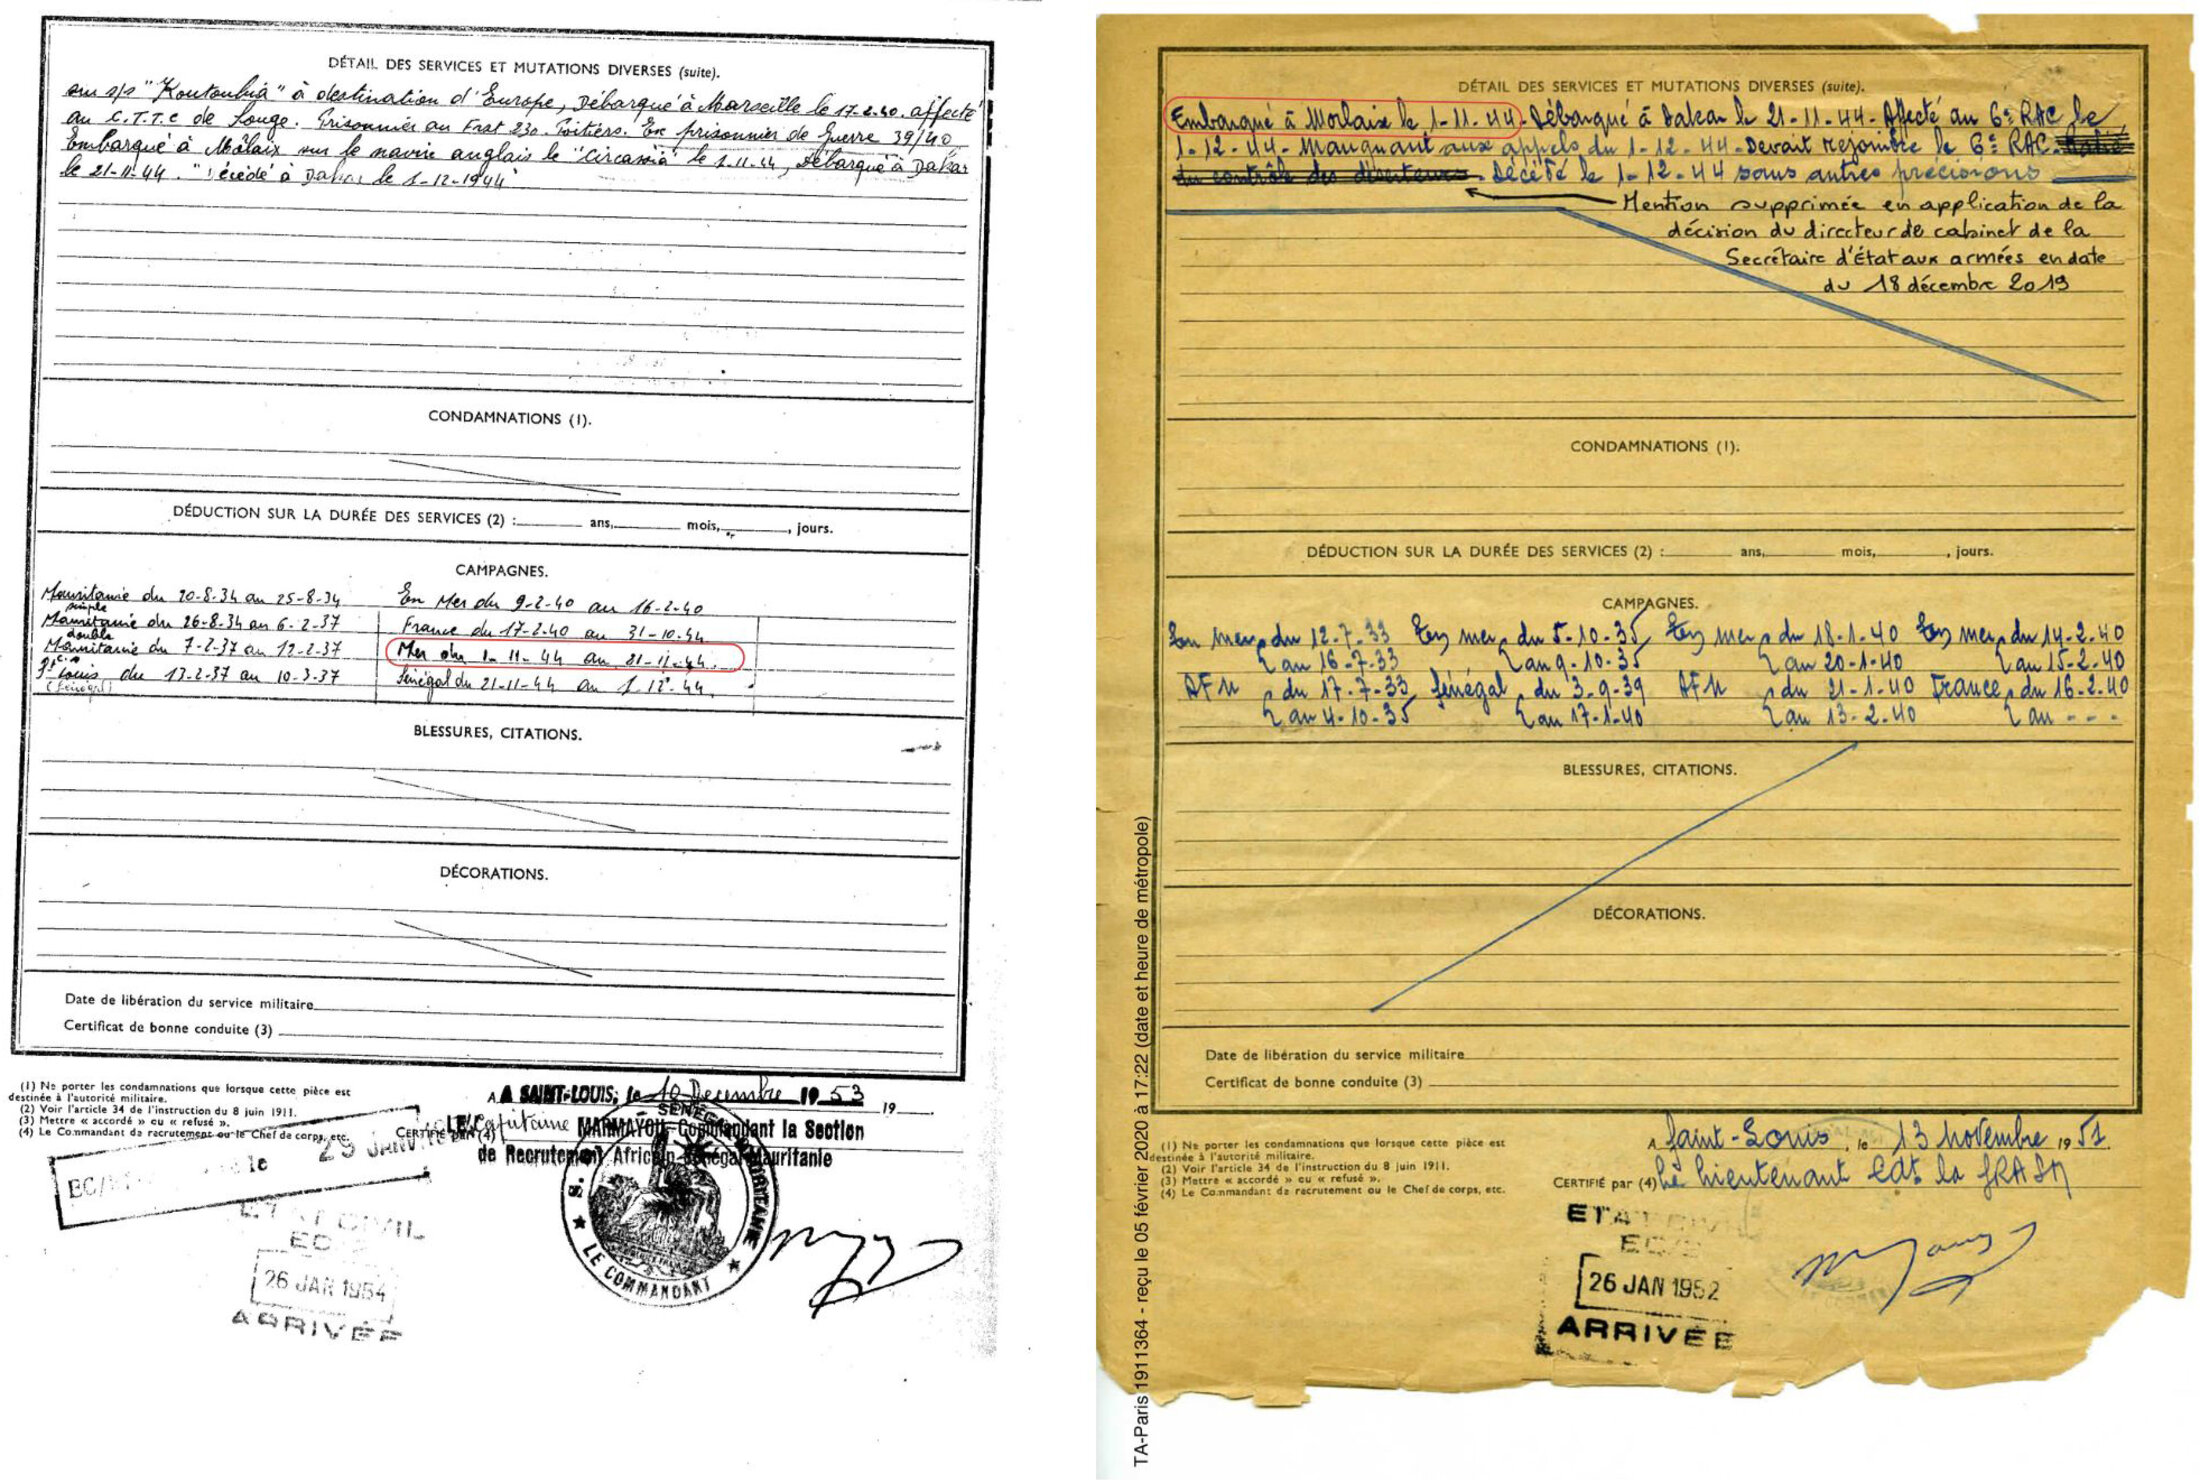 DÉTAIL DES SERVICES ET MUTATIONS DIVERSES (suite).
sur s/s "Koutoubia" à destination d'Europe, Débarqué à Marseille le 17.2.40. affecté
au C.T.T.C de Souge. Prisonnier au Frat 230. Poitiers. Ex prisonnier de Guerre 39/40
Embarqué à Molaix sur le navire anglais le "Circassia" le 1.11.44, Débarqué à Dakar
le 21-11-44. "Décédé à Dakar le 1-12-1944"
CONDAMNATIONS (1).
DÉDUCTION SUR LA DURÉE DES SERVICES (2) : ans, mois, , jours.
CAMPAGNES.
Mauritanie du 20-8-34 au 25-8-34 En Mer du 9-2-40 au 16-2-40
simple
Mauritanie du 26-8-34 au 6-2-37 France du 17-2-40 au 31-10-44
double
Mauritanie du 7-2-37 au 12-2-37 Mer du 1-11-44 au 21-11-44.
St Louis du 13-2-37 au 10-3-37 Sénégal du 21-11-44 au 1-12-44.
(Sénégal)
BLESSURES, CITATIONS.
DÉCORATIONS.
Date de libération du service militaire
Certificat de bonne conduite (3)
(1) Ne porter les condamnations que lorsque cette pièce est
destinée à l'autorité militaire.
(2) Voir l'article 34 de l'instruction du 8 juin 1911.
(3) Mettre « accordé » ou « refusé ».
(4) Le Commandant de recrutement ou le Chef de corps, etc.
A SAINT-LOUIS, le 10 Decembre 1953 19
CERTIFIÉ par (4) LE Capitaine MARMAYOU Commandant la Section
de Recrutement Africain Sénégal Mauritanie
LE COMMANDANT
le 29 JANV
ETAT CIVIL
26 JAN 1954
ARRIVÉE
DÉTAIL DES SERVICES ET MUTATIONS DIVERSES (suite).
Embarqué à Morlaix le 1-11-44. Débarqué à Dakar le 21-11-44. Affecté au 6e RAC le
1-12-44. Manquant aux appels du 1-12-44. Devait rejoindre le 6e RAC. Radié
du contrôle des déserteurs. Décédé le 1-12-44 sans autres précisions
Mention supprimée en application de la
décision du directeur de cabinet de la
Secrétaire d'État aux armées en date
du 18 décembre 2019
CONDAMNATIONS (1).
DÉDUCTION SUR LA DURÉE DES SERVICES (2) : ans, mois, , jours.
CAMPAGNES.
En mer du 12-7-33 En mer du 5-10-35 En mer du 18-1-40 En mer du 14-2-40
au 16-7-33 au 9-10-35 au 20-1-40 au 15-2-40
AFN du 17-7-33 Sénégal du 3-9-39 AFN du 21-1-40 France du 16-2-40
au 4-10-35 au 17-1-40 au 13-2-40 au - - -
BLESSURES, CITATIONS.
DÉCORATIONS.
Date de libération du service militaire
Certificat de bonne conduite (3)
(1) Ne porter les condamnations que lorsque cette pièce est
destinée à l'autorité militaire.
(2) Voir l'article 34 de l'instruction du 8 juin 1911.
(3) Mettre « accordé » ou « refusé ».
(4) Le Commandant de recrutement ou le Chef de corps, etc.
A Saint-Louis, le 13 novembre 1951.
CERTIFIÉ par (4) Le Lieutenant Cdt la SRASM
ETAT CIVIL
26 JAN 1952
ARRIVÉE
TA-Paris 1911364 - reçu le 05 février 2020 à 17:22 (date et heure de métropole)